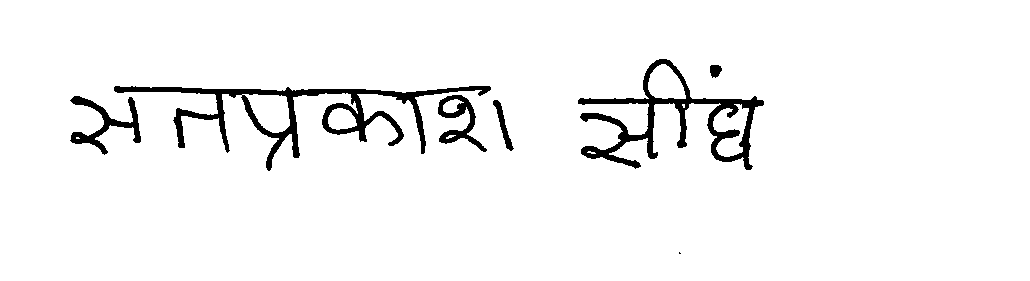 सतप्रकाश सीघं